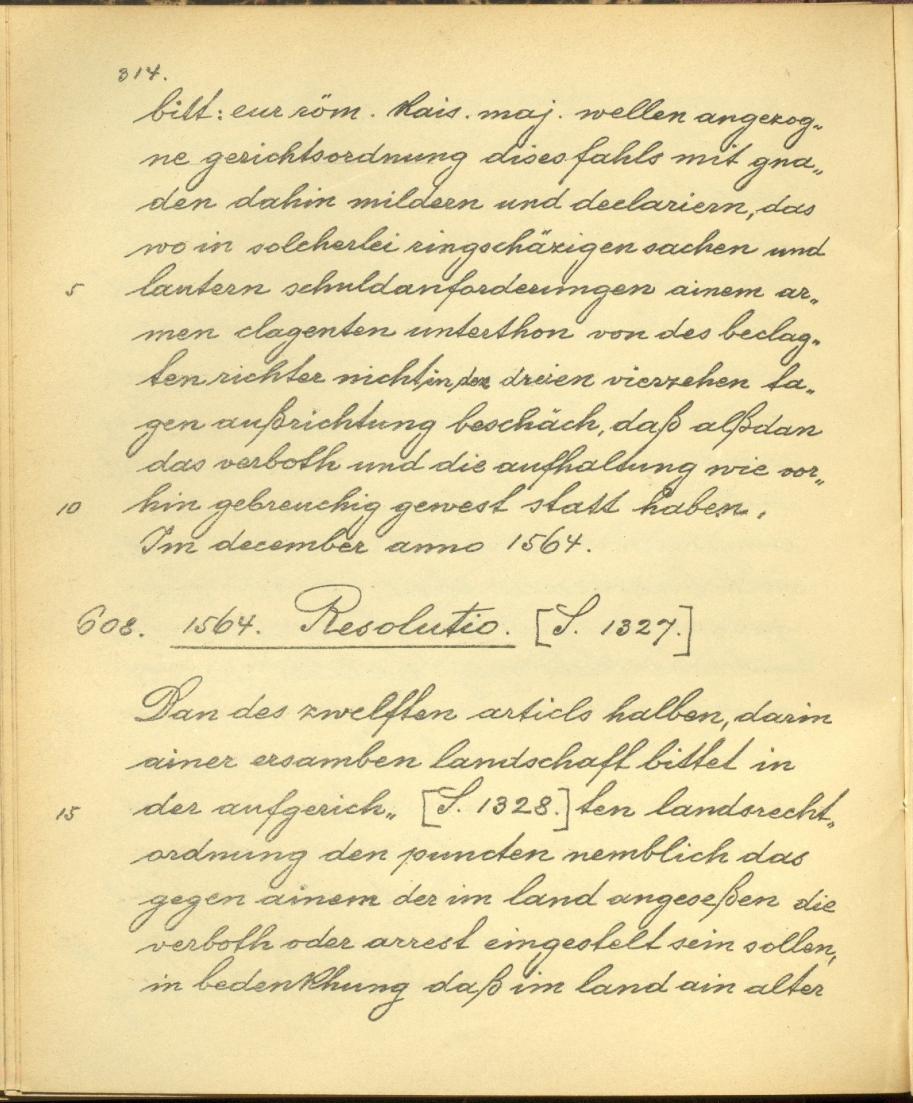 314.
bitt: eur röm. Kais. maj. wellen angezog„
ne gerichtsordnung dises fahls mit gna„
den dahin mildern und declariern, das
wo in solcherlei ringschäzigen sachen und
5 lautern schuldanforderungen ainem ar„
men clagenten unterthon von des beclag„
ten richter nicht in den dreien vierzehen ta„
gen außrichtung beschäch, daß alßdan
das verboth und die aufhaltung wie vor„
10 hin gebreuchig gewest statt haben.
Im december anno 1564.
608. 1564. Resolutio. [S. 1327.]
Dan des zwelften articls halben, darin
ainer ersamben landschaft bittet in
15 der aufgerich„ [S. 1328.] ten landsrecht„
ordnung den puncten nemblich das
gegen ainem der im land angeseßen die
verboth oder arrest eingestelt sein sollen,
in bedenkhung daß im land ain alter